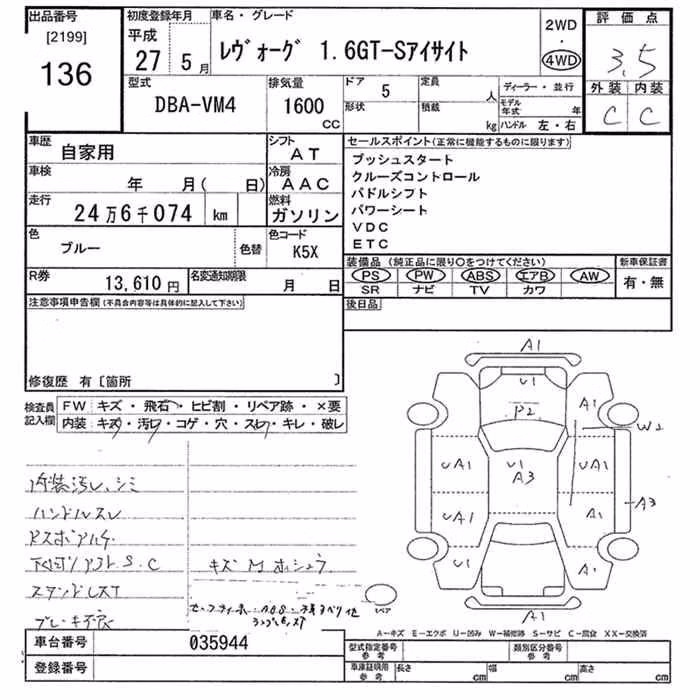 出品番号
[2199]
136
初度登録年月
平成
27 5月
車名・グレード
ﾚヴｫｰグ 1.6GT-Sアイサイト
2WD
・
4WD
評価点
3.5
外装 内装
C C
型式
DBA-VM4
排気量
1600
CC
ドア
5
形状
定員
人
積載
kg
ディーラー・並行
モデル年式 年
ハンドル 左・右
車歴
自家用
シフト
AT
車検
年 月( 日)
冷房
AAC
走行
24万6千074 km
燃料
ガソリン
色
ブルー
色替
色コード
K5X
R券
13,610円
名変通知期限
月 日
セールスポイント(正常に機能するものに限ります)
プッシュスタート
クルーズコントロール
パドルシフト
パワーシート
VDC
ETC
装備品(純正品に限り○をつけてください)
PS PW ABS エアB AW
SR ナビ TV カワ
新車保証書
有・無
後日品
注意事項申告欄(不具合内容等は具体的に記入して下さい)
修復歴 有〔箇所 〕
検査員記入欄
FW キズ・飛石・ヒビ割・リペア跡・×要
内装 キズ・汚レ・コゲ・穴・スレ・キレ・破レ
内装汚レ、シミ
ハンドルスレ
S.C
キズ M
A1
U1
P2
A1
W2
UA1
U1
A3
UA1
A3
UA1
A1
U1
A1
A1
リペア
A-キズ E-エクボ U-凹み W-補修跡 S-サビ C-腐食 XX-交換済
車台番号
035944
登録番号
型式指定番号
参考
類別区分番号
参考
車庫証明用
参考
長さ cm
幅 cm
高さ cm